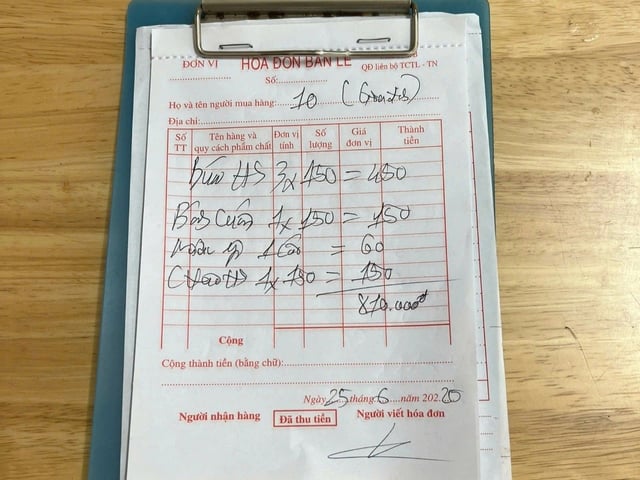 ĐƠN VỊ HÓA ĐƠN BÁN LẺ
Số: QĐ liên bộ TCTL - TN
Họ và tên người mua hàng: 10
Địa chỉ:
Số TT Tên hàng và quy cách phẩm chất Đơn vị tính Số lượng Giá đơn vị Thành tiền
Bún HS 3x 150 = 450
Bánh Cuốn 1x 150 = 150
1 = 60
Cháo HS 1x 150 = 150
810.000đ
Cộng
Cộng thành tiền (bằng chữ):
Ngày 25 tháng 6 năm 202.20
Người nhận hàng Đã thu tiền Người viết hóa đơn